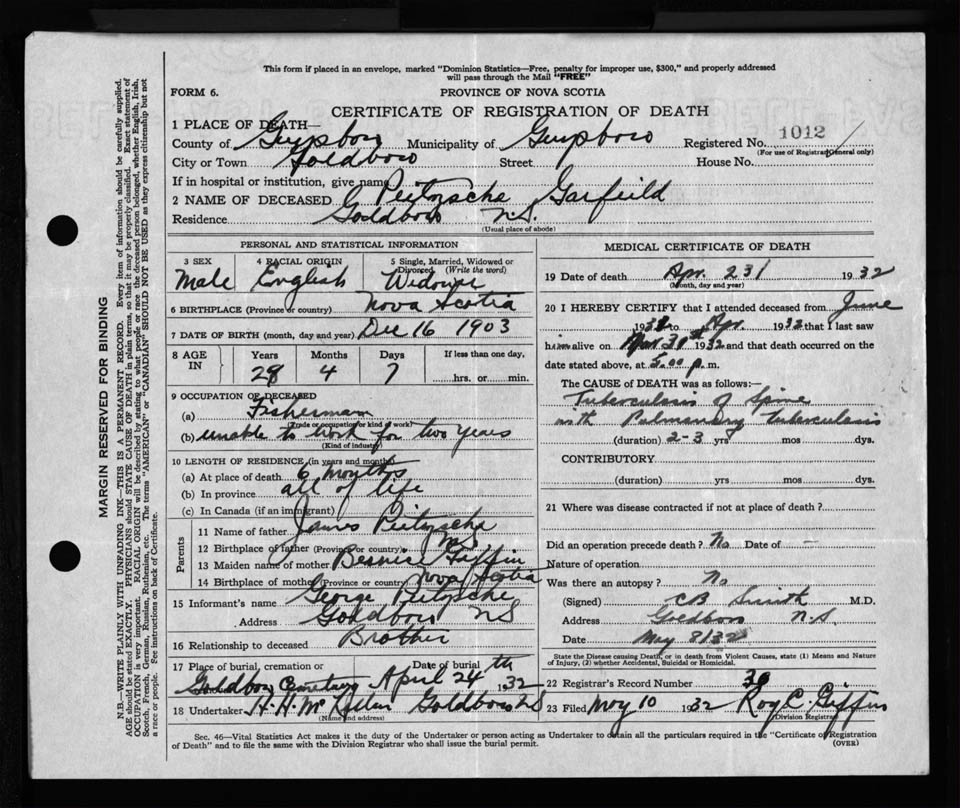 This form if placed in an envelope, marked "Dominion Statistics—Free, penalty for improper use, $300," and properly addressed
will pass through the Mail "FREE"
FORM 6. PROVINCE OF NOVA SCOTIA
CERTIFICATE OF REGISTRATION OF DEATH
1 PLACE OF DEATH—
County of Guysboro Municipality of Guysboro Registered No. 1012
(For use of Registrar General only)
City or Town Goldboro Street House No.
If in hospital or institution, give name
2 NAME OF DECEASED Peitzsche Garfield
Residence Goldboro N.S.
(Usual place of abode)
PERSONAL AND STATISTICAL INFORMATION
3 SEX 4 RACIAL ORIGIN 5 Single, Married, Widowed or
Divorced (Write the word)
Male English Widower
6 BIRTHPLACE (Province or country) Nova Scotia
7 DATE OF BIRTH (month, day and year) Dec 16 1903
8 AGE IN Years Months Days If less than one day,
28 4 7 hrs. or min.
9 OCCUPATION OF DECEASED
(a) Fisherman
(Trade or occupation or kind of work)
(b) unable to work for two years
(Kind of industry)
10 LENGTH OF RESIDENCE (in years and months)
(a) At place of death 6 months
(b) In province all of life
(c) In Canada (if an immigrant)
Parents
11 Name of father James Peitzsche
12 Birthplace of father (Province or country) N.S
13 Maiden name of mother Bernice Giffin
14 Birthplace of mother (Province or country) Nova Scotia
15 Informant's name George Peitzsche
Address Goldboro NS
16 Relationship to deceased Brother
17 Place of burial, cremation or Date of burial
Goldboro Cemetery April 24th 1932
18 Undertaker H. H. Goldboro NS
(Name and address)
MEDICAL CERTIFICATE OF DEATH
19 Date of death Apr. 23/ 1932
(Month, day and year)
20 I HEREBY CERTIFY that I attended deceased from June
193 to Apr. 1932 that I last saw
h alive on 1932 and that death occurred on the
date stated above, at 5.00 p.m.
The CAUSE OF DEATH was as follows:—
Tuberculosis of Spine
with Pulmonary Tuberculosis
(duration) 2-3 yrs mos dys.
CONTRIBUTORY
(duration) yrs mos dys.
21 Where was disease contracted if not at place of death?
Did an operation precede death? No Date of —
Nature of operation
Was there an autopsy? No
(Signed) CB Smith M.D.
Address Goldboro N.S.
Date May 8/32
State the Disease causing Death, or in death from Violent Causes, state (1) Means and Nature
of Injury, (2) whether Accidental, Suicidal or Homicidal.
22 Registrar's Record Number 36
23 Filed May 10 1932 Roy C. Giffin
(Division Registrar)
Sec. 46—Vital Statistics Act makes it the duty of the Undertaker or person acting as Undertaker to obtain all the particulars required in the "Certificate of Registration
of Death" and to file the same with the Division Registrar who shall issue the burial permit.
(OVER)
MARGIN RESERVED FOR BINDING
N.B.—WRITE PLAINLY WITH UNFADING INK—THIS IS A PERMANENT RECORD. Every item of information should be carefully supplied.
AGE should be stated EXACTLY. PHYSICIANS should STATE CAUSE OF DEATH in plain terms, so that it may be properly classified. Exact statement of
OCCUPATION is very important. RACIAL ORIGIN will be described by stating to what people or race the deceased person belonged, whether English, Irish,
Scotch, French, German, Russian, Ruthenian, etc. The terms "AMERICAN" or "CANADIAN" SHOULD NOT BE USED as they express citizenship but not
a race or people. See instructions on back of Certificate.